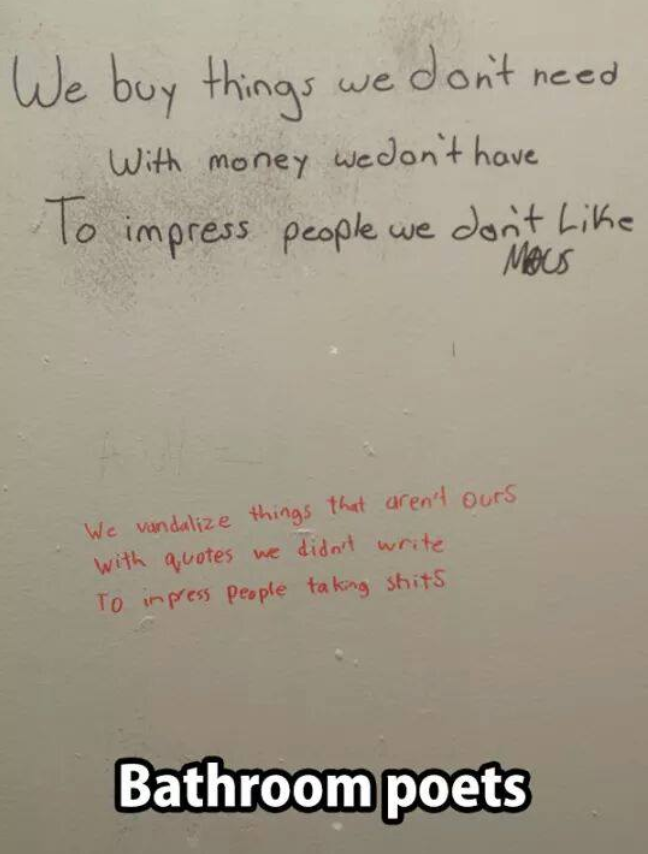 We buy things we don't need
With money we don't have
To impress people we don't Like
We vandalize things that aren't ours
with quotes we didn't write
To inpress people taking shits
Bathroom poets